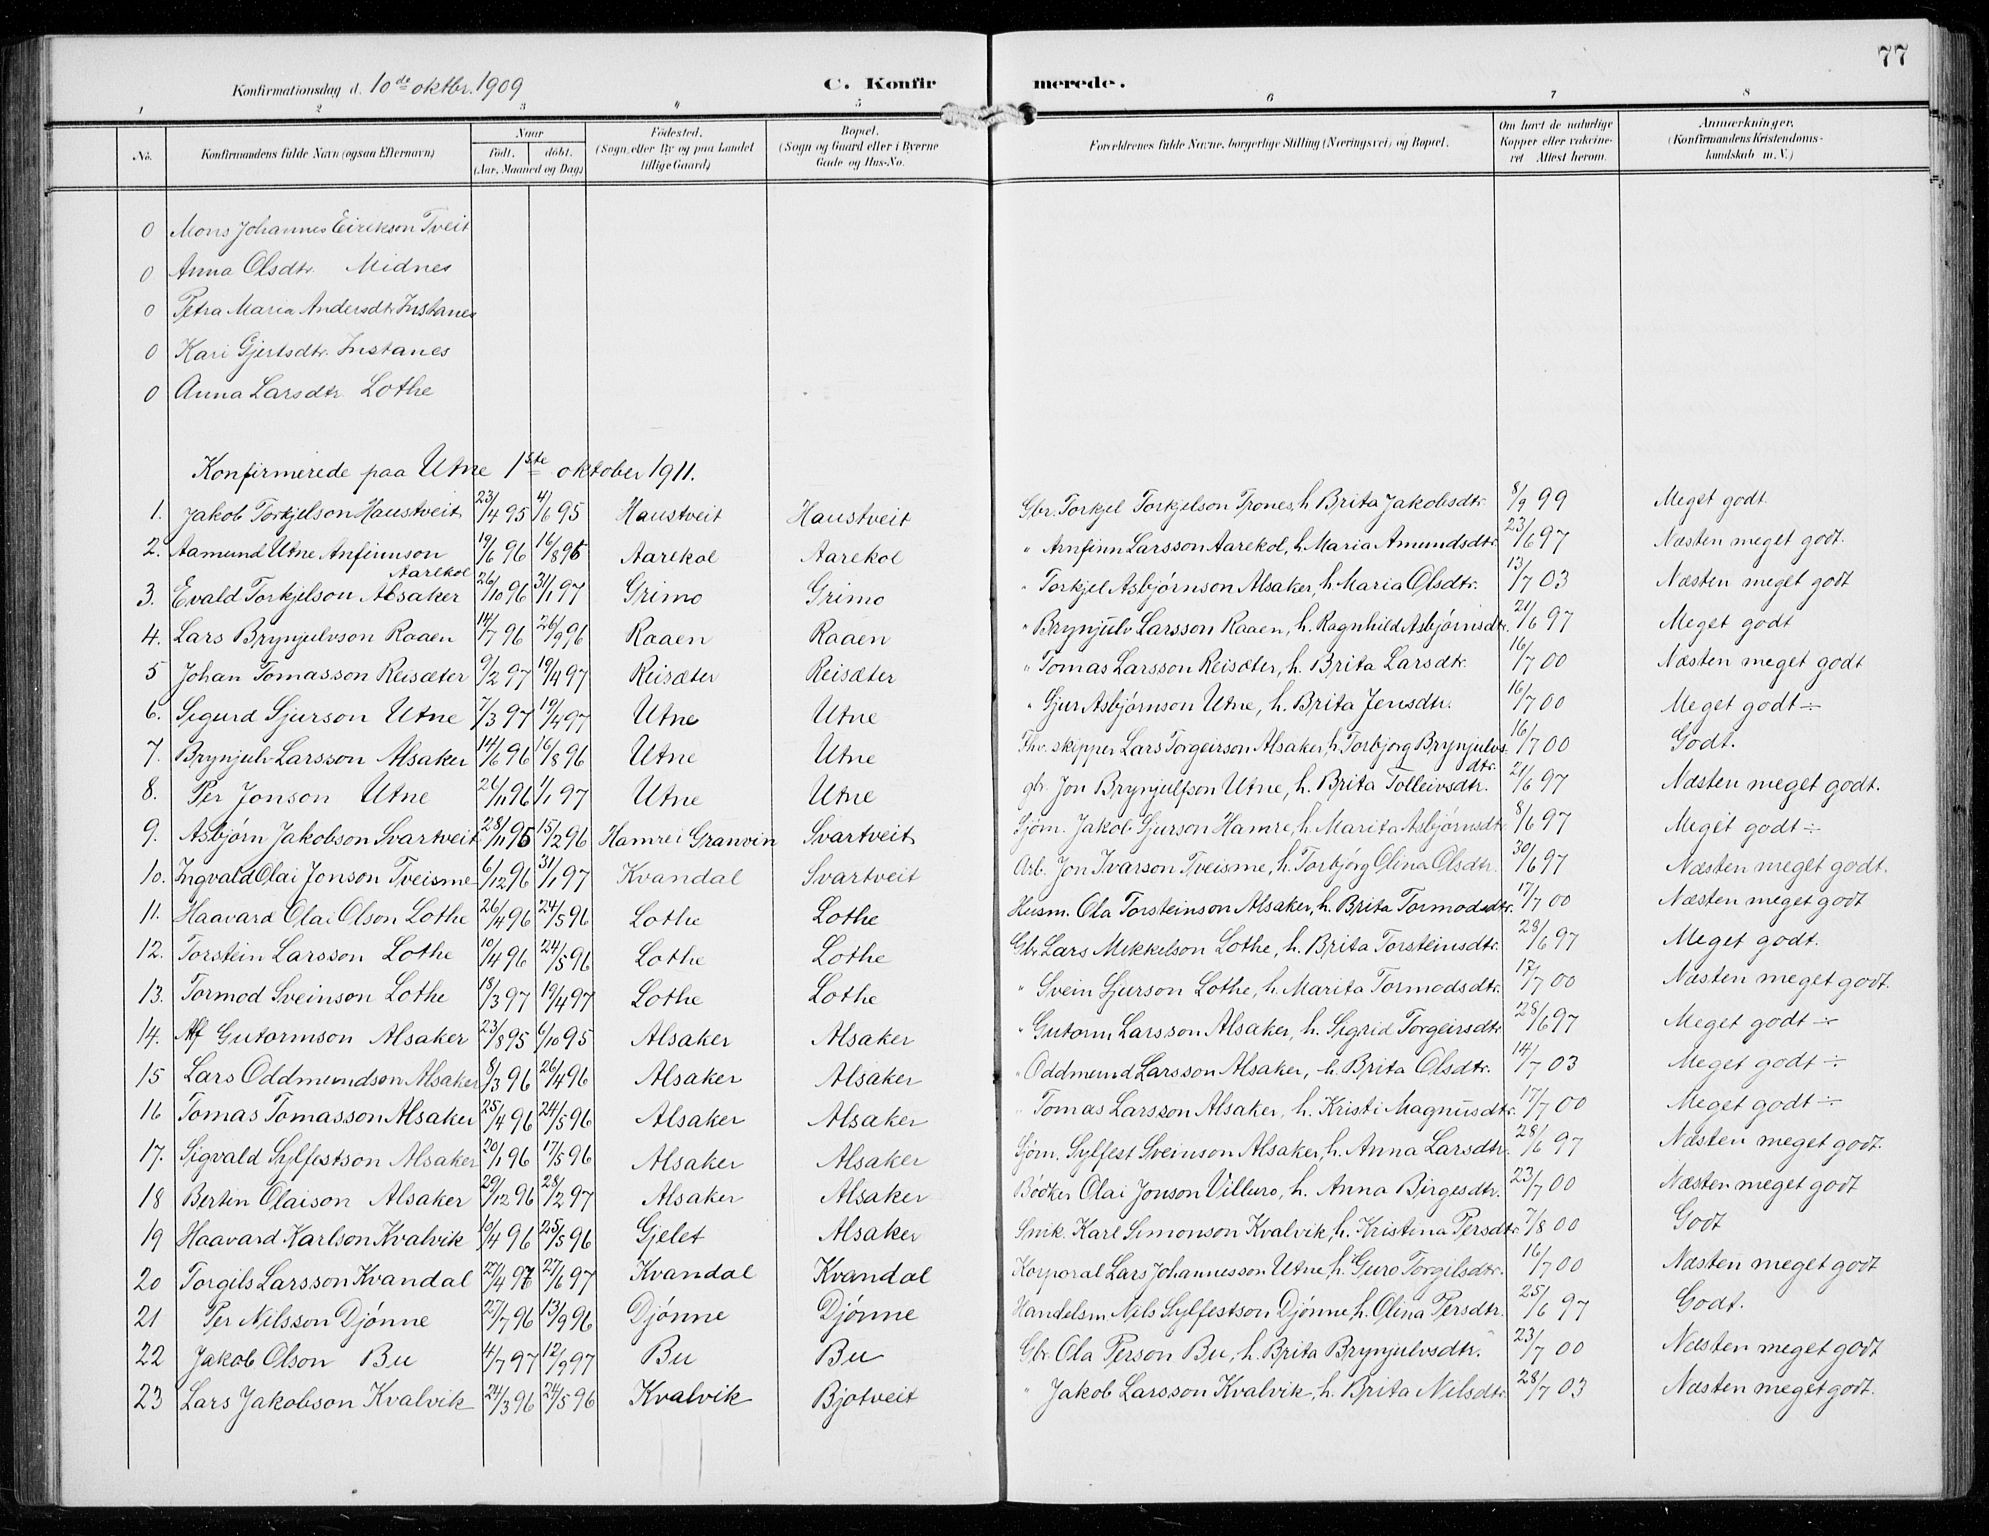 77
Konfirmationsdag d. 10de oktbr. 1909 C. Konfirmerede.
1 2 3 4 5 6 7 8
No. Konfirmandens fulde Navn (ogsaa Efternavn) Naar födt. döbt. (Aar, Maaned og Dag) Födested. (Sogn eller By og paa Landet tillige Gaard) Bopæl. (Sogn og Gaard eller i Byerne Gade og Hus-No. Forældrenes fulde Navne, borgerlige Stilling (Næringsvei) og Bopæl. Om havt de naturlige Kopper eller vakcineret Attest herom. Anmærkninger. (Konfirmandens Kristendomskundskab m. V.)
0 Mons Johannes Eirikson Tveit
0 Anna Olsdtr. Midnes
0 Petra Maria Andersdtr. Instanes
0 Kari Gjertsdtr. Instanes
0 Anna Larsdtr. Lothe
Konfirmerede paa Utne 1ste oktober 1911.
1. Jakob Torkjelson Haustveit 23/4 95 4/6 95 Haustveit Haustveit Gbr. Torkjel Torkjelson Trones, h. Brita Jakobsdtr. 8/9 99 Meget godt.
2. Aamund Utne Anfinnson Aarekol 19/6 96 16/8 96 Aarekol Aarekol " Arnfinn Larsson Aarekol, h. Maria Amundsdtr. 23/6 97 Næsten meget godt.
3. Evald Torkjelson Alsaker 26/10 96 31/1 97 Grimo Grimo " Torkjel Asbjørnson Alsaker, h. Maria Olsdtr. 13/7 03 Næsten meget godt
4. Lars Brynjulvson Raaen 14/7 96 26/9 96 Raaen Raaen " Brynjulv Larsson Raaen, h. Ragnhild Asbjørnsdtr. 21/6 97 Meget godt
5 Johan Tomasson Reisæter 9/2 97 19/4 97 Reisæter Reisæter " Tomas Larsson Reisæter, h. Brita Larsdtr. 16/7 00 Næsten meget godt
6. Sigurd Sjurson Utne 7/3 97 19/4 97 Utne Utne " Sjur Asbjørnson Utne, h. Brita Jensdtr. 16/7 00 Meget godt ÷
7. Brynjulv Larsson Alsaker 14/6 96 16/8 96 Utne Utne Fhv. skipper Lars Torgeirson Alsaker, h. Torbjorg Brynjulvsdtr. 16/7 00 Godt.
8. Per Jonson Utne 21/11 96 1/1 97 Utne Utne gbr. Jon Brynjulfson Utne, h. Brita Tolleivsdtr. 21/6 97 Næsten meget godt.
9. Asbjørn Jakobson Svartveit 28/11 95 15/2 96 Hamre i Granvin Svartveit Sjøm. Jakob Sjurson Hamre, h. Marita Asbjørnsdtr. 8/6 97 Meget godt ÷
10. Ingvald Olai Jonson Tveisme 6/12 96 31/1 97 Kvandal Svartveit Arb. Jon Ivarson Tveisme, h. Torbjørg Olina Olsdtr. 30/6 97 Næsten meget godt.
11. Haavard Olai Olson Lothe 26/4 96 24/5 96 Lothe Lothe Husm. Ola Torsteinson Alsaker, h. Brita Tormodsdtr. 17/7 00 Næsten meget godt
12. Torstein Larsson Lothe 10/4 96 24/5 96 Lothe Lothe Gbr. Lars Mikkelson Lothe, h. Brita Torsteinsdtr. 28/6 97 Meget godt.
13. Tormod Sveinson Lothe 18/3 97 19/4 97 Lothe Lothe " Svein Sjurson Lothe, h. Marita Tormodsdtr. 17/7 00 Næsten meget godt.
14. Alf Gutormson Alsaker 23/8 95 6/10 95 Alsaker Alsaker " Gutorm Larsson Alsaker, h. Sigrid Torgeirsdtr 28/6 97 Meget godt ÷
15 Lars Oddmundson Alsaker 8/3 96 26/4 96 Alsaker Alsaker " Oddmund Larsson Alsaker, h. Brita Olsdtr. 14/7 03 Meget godt ÷
16 Tomas Tomasson Alsaker 25/4 96 24/5 96 Alsaker Alsaker " Tomas Larsson Alsaker, h. Kristi Magnusdtr. 17/7 00 Meget godt ÷
17. Sigvald Sylfestson Alsaker 20/1 96 17/5 96 Alsaker Alsaker Sjøm. Sylfest Sveinson Alsaker, h. Anna Larsdtr. 28/6 97 Næsten meget godt.
18 Berten Olaison Alsaker 29/12 96 28/2 97 Alsaker Alsaker Bødker Olai Jonson Villuro, h. Anna Birgesdtr. 23/7 00 Næsten meget godt
19 Haavard Karlson Kvalvik 10/4 96 25/5 96 Gjelet Alsaker Snik. Karl Simonson Kvalvik, h. Kristina Persdtr. 7/8 00 Godt
20 Torgils Larsson Kvandal 27/4 97 27/6 97 Kvandal Kvandal Korporal Lars Johannesson Utne, h. Guro Torgilsdtr. 16/7 00 Næsten meget godt
21 Per Nilsson Djønne 27/7 96 13/9 96 Djønne Djønne Handelsm. Nils Sylfestson Djønne, h. Olina Persdtr. 25/6 97 Godt.
22 Jakob Olson Bu 4/7 97 12/9 97 Bu Bu Gbr. Ola Person Bu, h. Brita Brynjulvsdtr. 23/7 00 Næsten meget godt
23 Lars Jakobson Kvalvik 24/3 96 24/5 96 Kvalvik Bjotveit " Jakob Larsson Kvalvik, h. Brita Nilsdtr 28/7 03 Næsten meget godt.